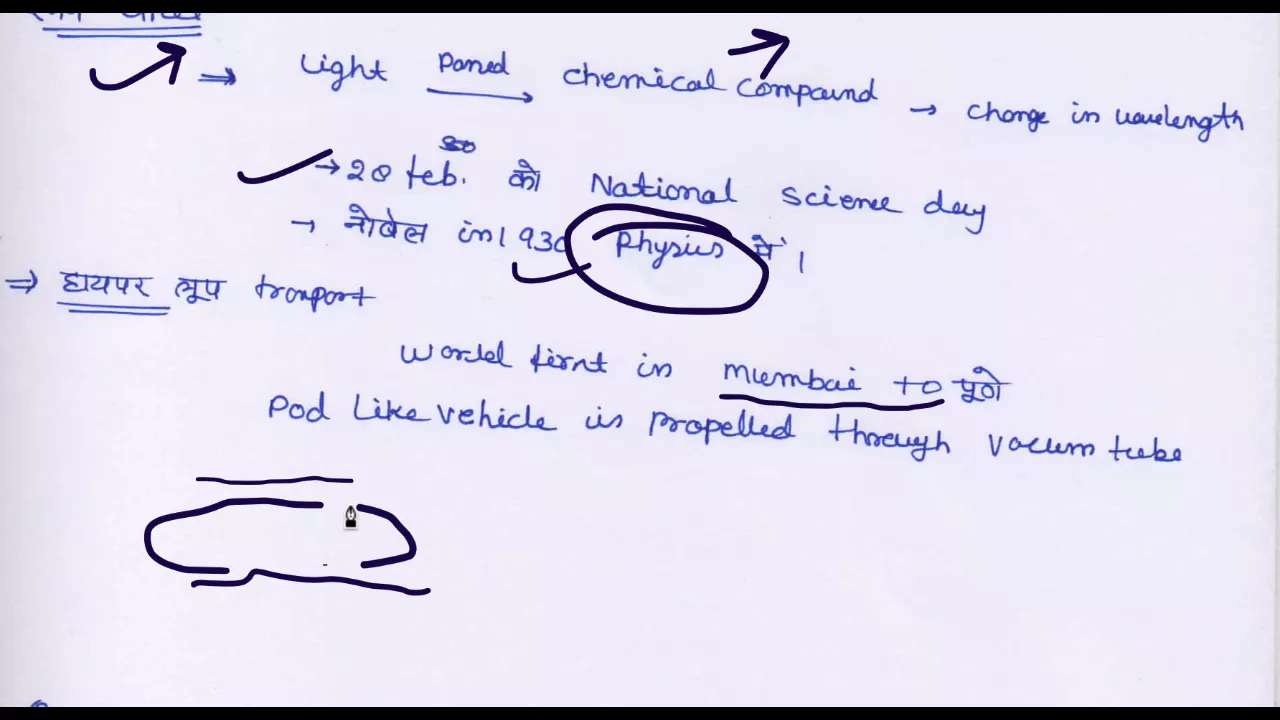 ⇒ Light Paned → chemical compound → change in wavelength
→ 28 feb. को National Science day
→ नोबेल in 1930 Physics में ।
⇒ हायपर लूप tranport
world firnt in mumbai to पूणे
Pod Like vehicle is propelled through vacum tube